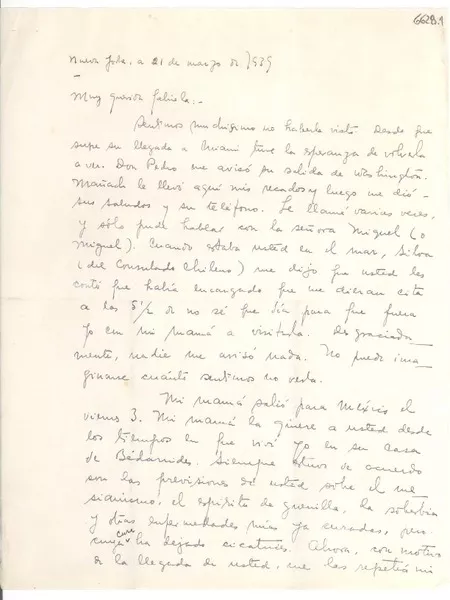 662B.1
Nueva York, a 21 de marzo de 1939
Muy querida Gabriela:-
Sentimos muchísimo no haberla visto. Desde que
supe su llegada a Miami tuve la esperanza de volverla
a ver. Don Pedro me avisó su salida de Washington.
Mañach le llevó aquí mis recados y luego me dió
sus saludos y su teléfono. Le llamé varias veces,
y sólo pude hablar con la señora Miguel (o
Miguel). Cuando estaba usted en el mar, Silva
(del Consulado Chileno) me dijo que usted les
contó que había encargado que me dieran cita
a las 5½ de no sé qué día para que fuera
yo con mi mamá a visitarla. Desgraciada-
mente, nadie me avisó nada. No puede ima-
ginarse cuánto sentimos no verla.
Mi mamá salió para México el
viernes 3. Mi mamá la quiere a usted desde
los tiempos en que viví yo en su casa
de Bédarrides. Siempre estuvo de acuerdo
con las previsiones de usted sobre el me-
sianismo, el espíritu de guerrilla, la soberbia
y otras enfermedades mías ya curadas, pero
cuya cura ha dejado cicatrices. Ahora, con motivo
de la llegada de usted, me las repetía mi